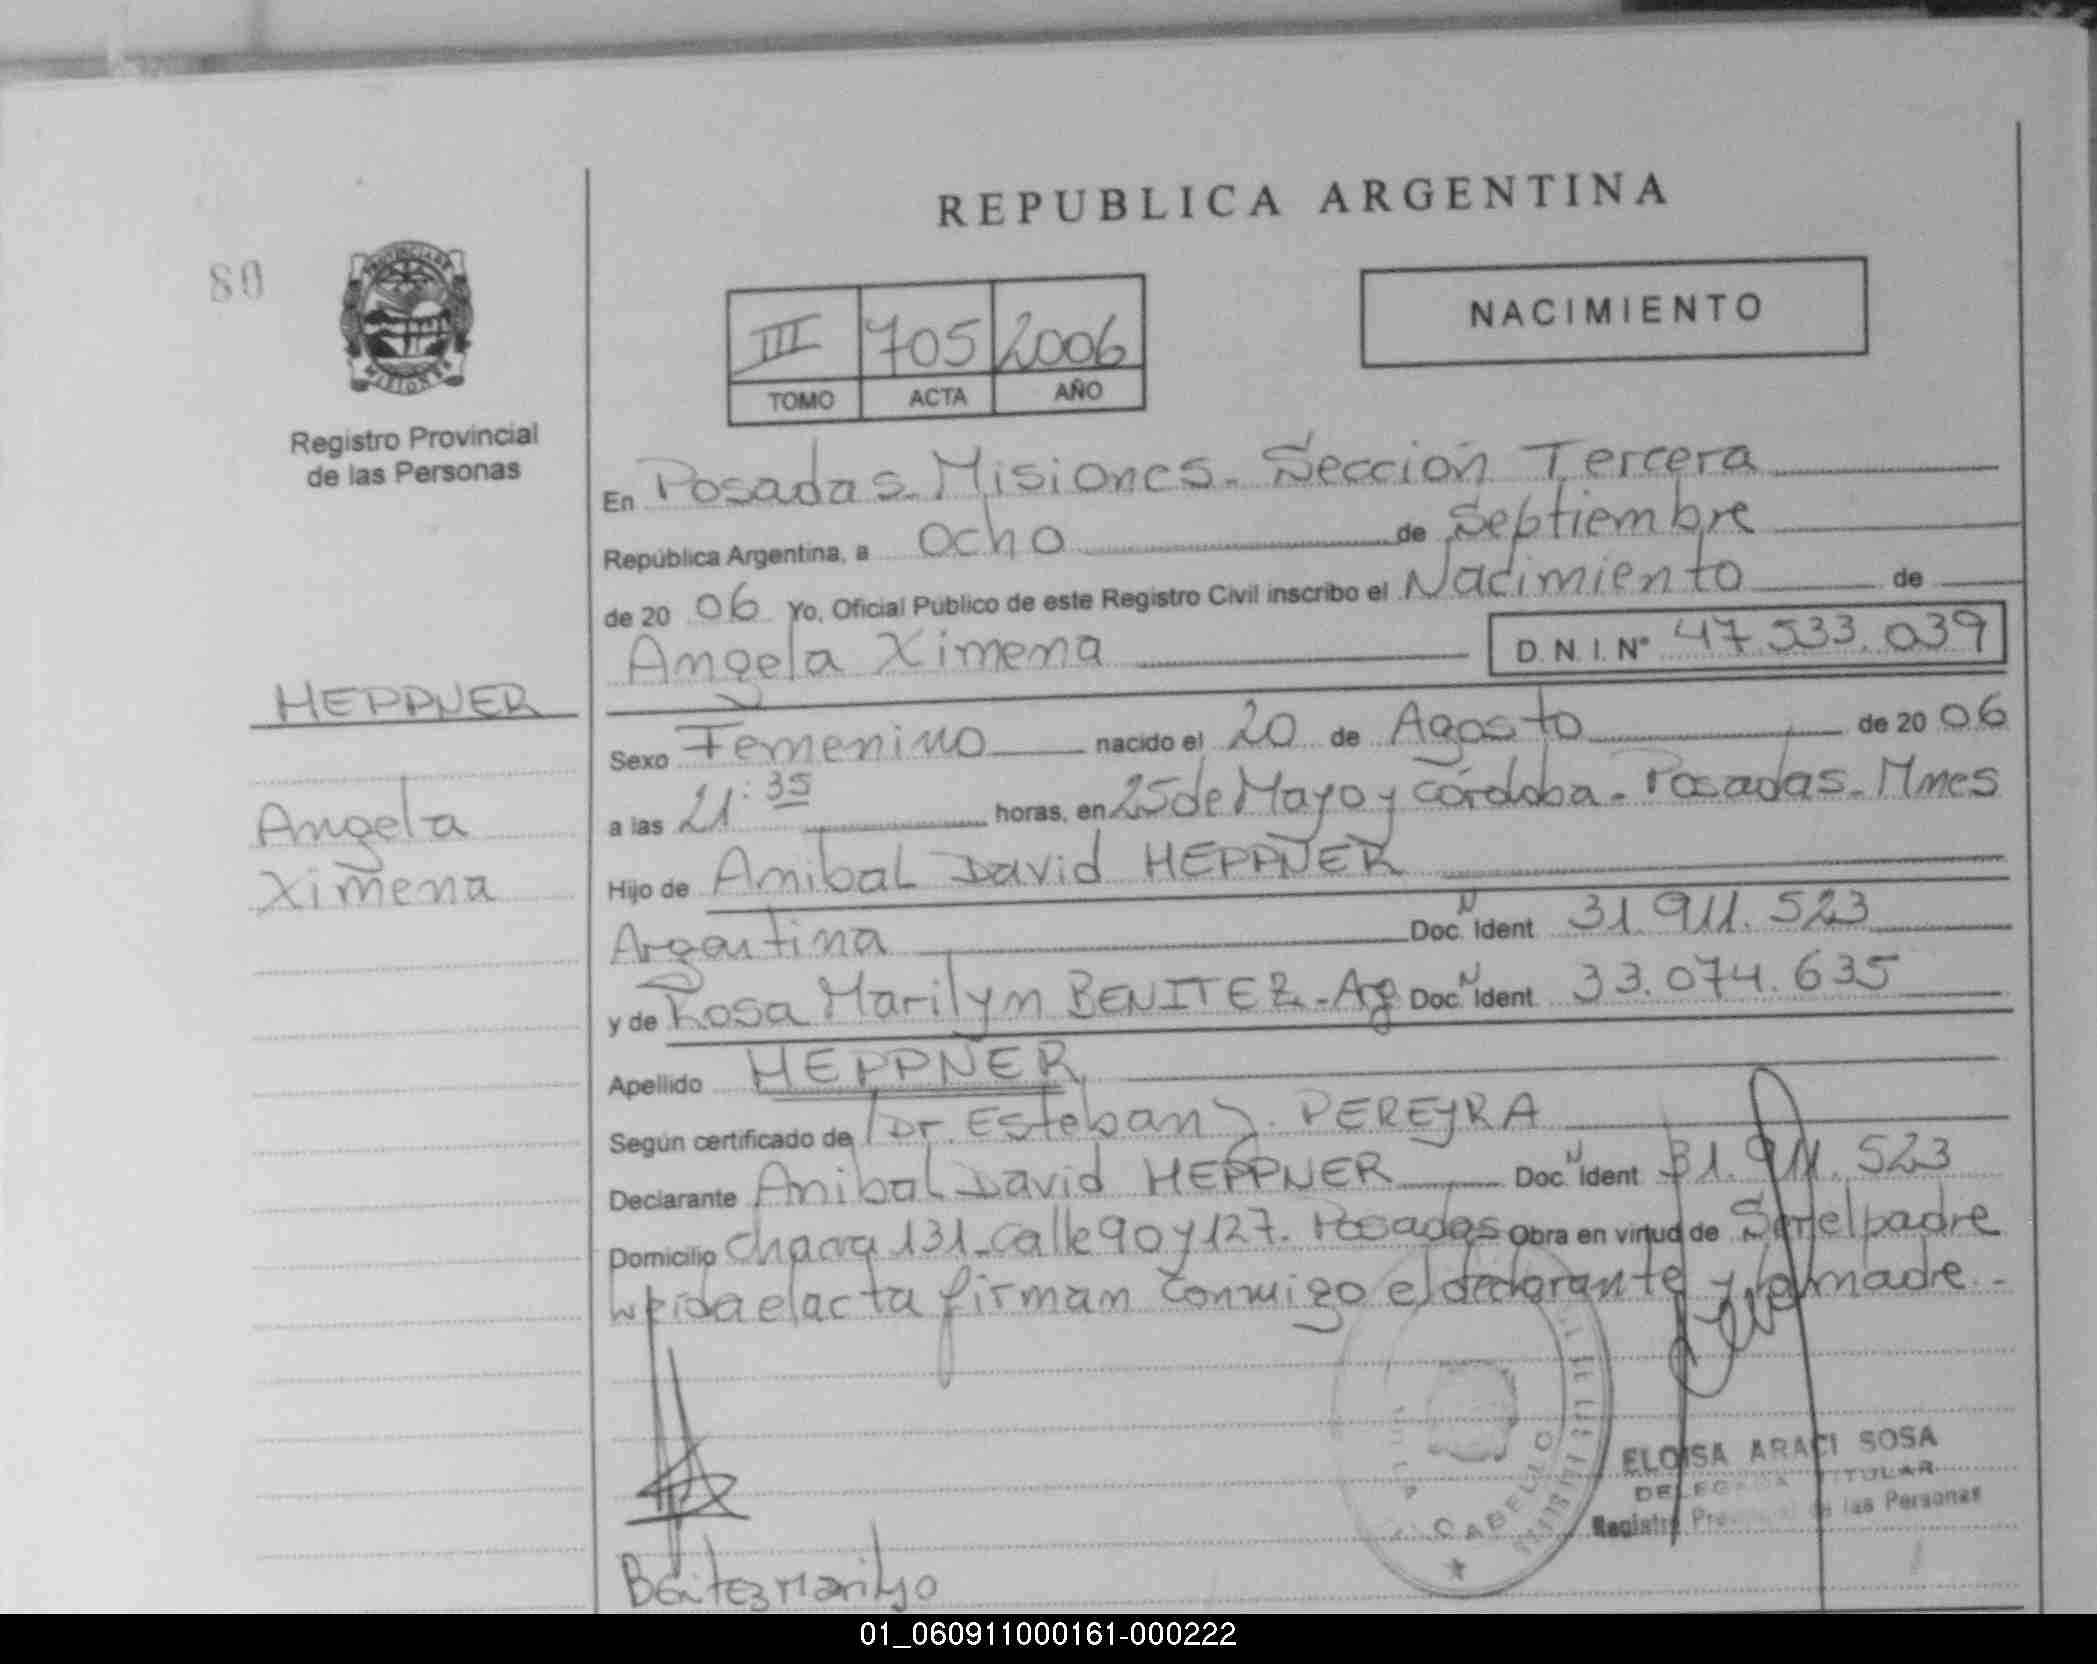 REPUBLICA ARGENTINA
80
PROVINCIA DE
MISIONES
NACIMIENTO
III 705 2006
TOMO ACTA AÑO
Registro Provincial
de las Personas
En Posadas - Misiones - Sección Tercera
República Argentina, a ocho de Septiembre
de 20 06 Yo, Oficial Público de este Registro Civil inscribo el Nacimiento de
Angela Ximena D.N.I. Nº 47.533.039
HEPPNER
Angela
Ximena
Sexo Femenino nacido el 20 de Agosto de 20 06
a las 21:35 horas, en 25 de Mayo y Córdoba - Posadas - Mnes
Hijo de Anibal David HEPPNER
Argentina Doc. N Ident 31.911.523
y de Rosa Marilyn BENITEZ - Ag Doc. N Ident 33.074.635
Apellido HEPPNER
Según certificado de Dr. Esteban J. PEREYRA
Declarante Anibal David HEPPNER Doc. N Ident 31.911.523
Domicilio Chacra 131 - Calle 90 y 127 - Posadas Obra en virtud de Ser el padre
Leida el acta firman conmigo el declarante y la madre -
CABELLO
ELOISA ARACI SOSA
DELEGADA TITULAR
Registro Provincial de las Personas
Benitez
01_060911000161-000222